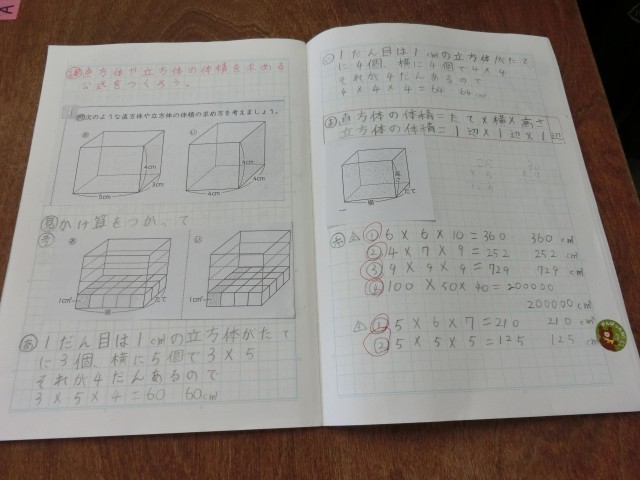 直方体や立方体の体積を求める
公式をつくろう。
次のような直方体や立方体の体積の求め方を考えましょう。
あ
い
4cm
3cm
5cm
4cm
4cm
4cm
見
かけ算をつかって
あ
い
1cm³
たて
横
1cm³
あ
1だん目は1cm³の立方体がたて
に3個、横に5個で3×5
それが4だんあるので
3×5×4=60 60cm³
い
1だん目は1cm³の立方体がたて
に4個、横に4個で4×4
それが4だんあるので
4×4×4=64 64cm³
ま
直方体の体積=たて×横×高さ
立方体の体積=1辺×1辺×1辺
高さ
たて
横
① 6×6×10=360 360cm³
② 4×7×9=252 252cm³
③ 9×9×9=729 729cm³
④ 100×50×40=200000
200000cm³
① 5×6×7=210 210cm³
② 5×5×5=125 125cm³
A